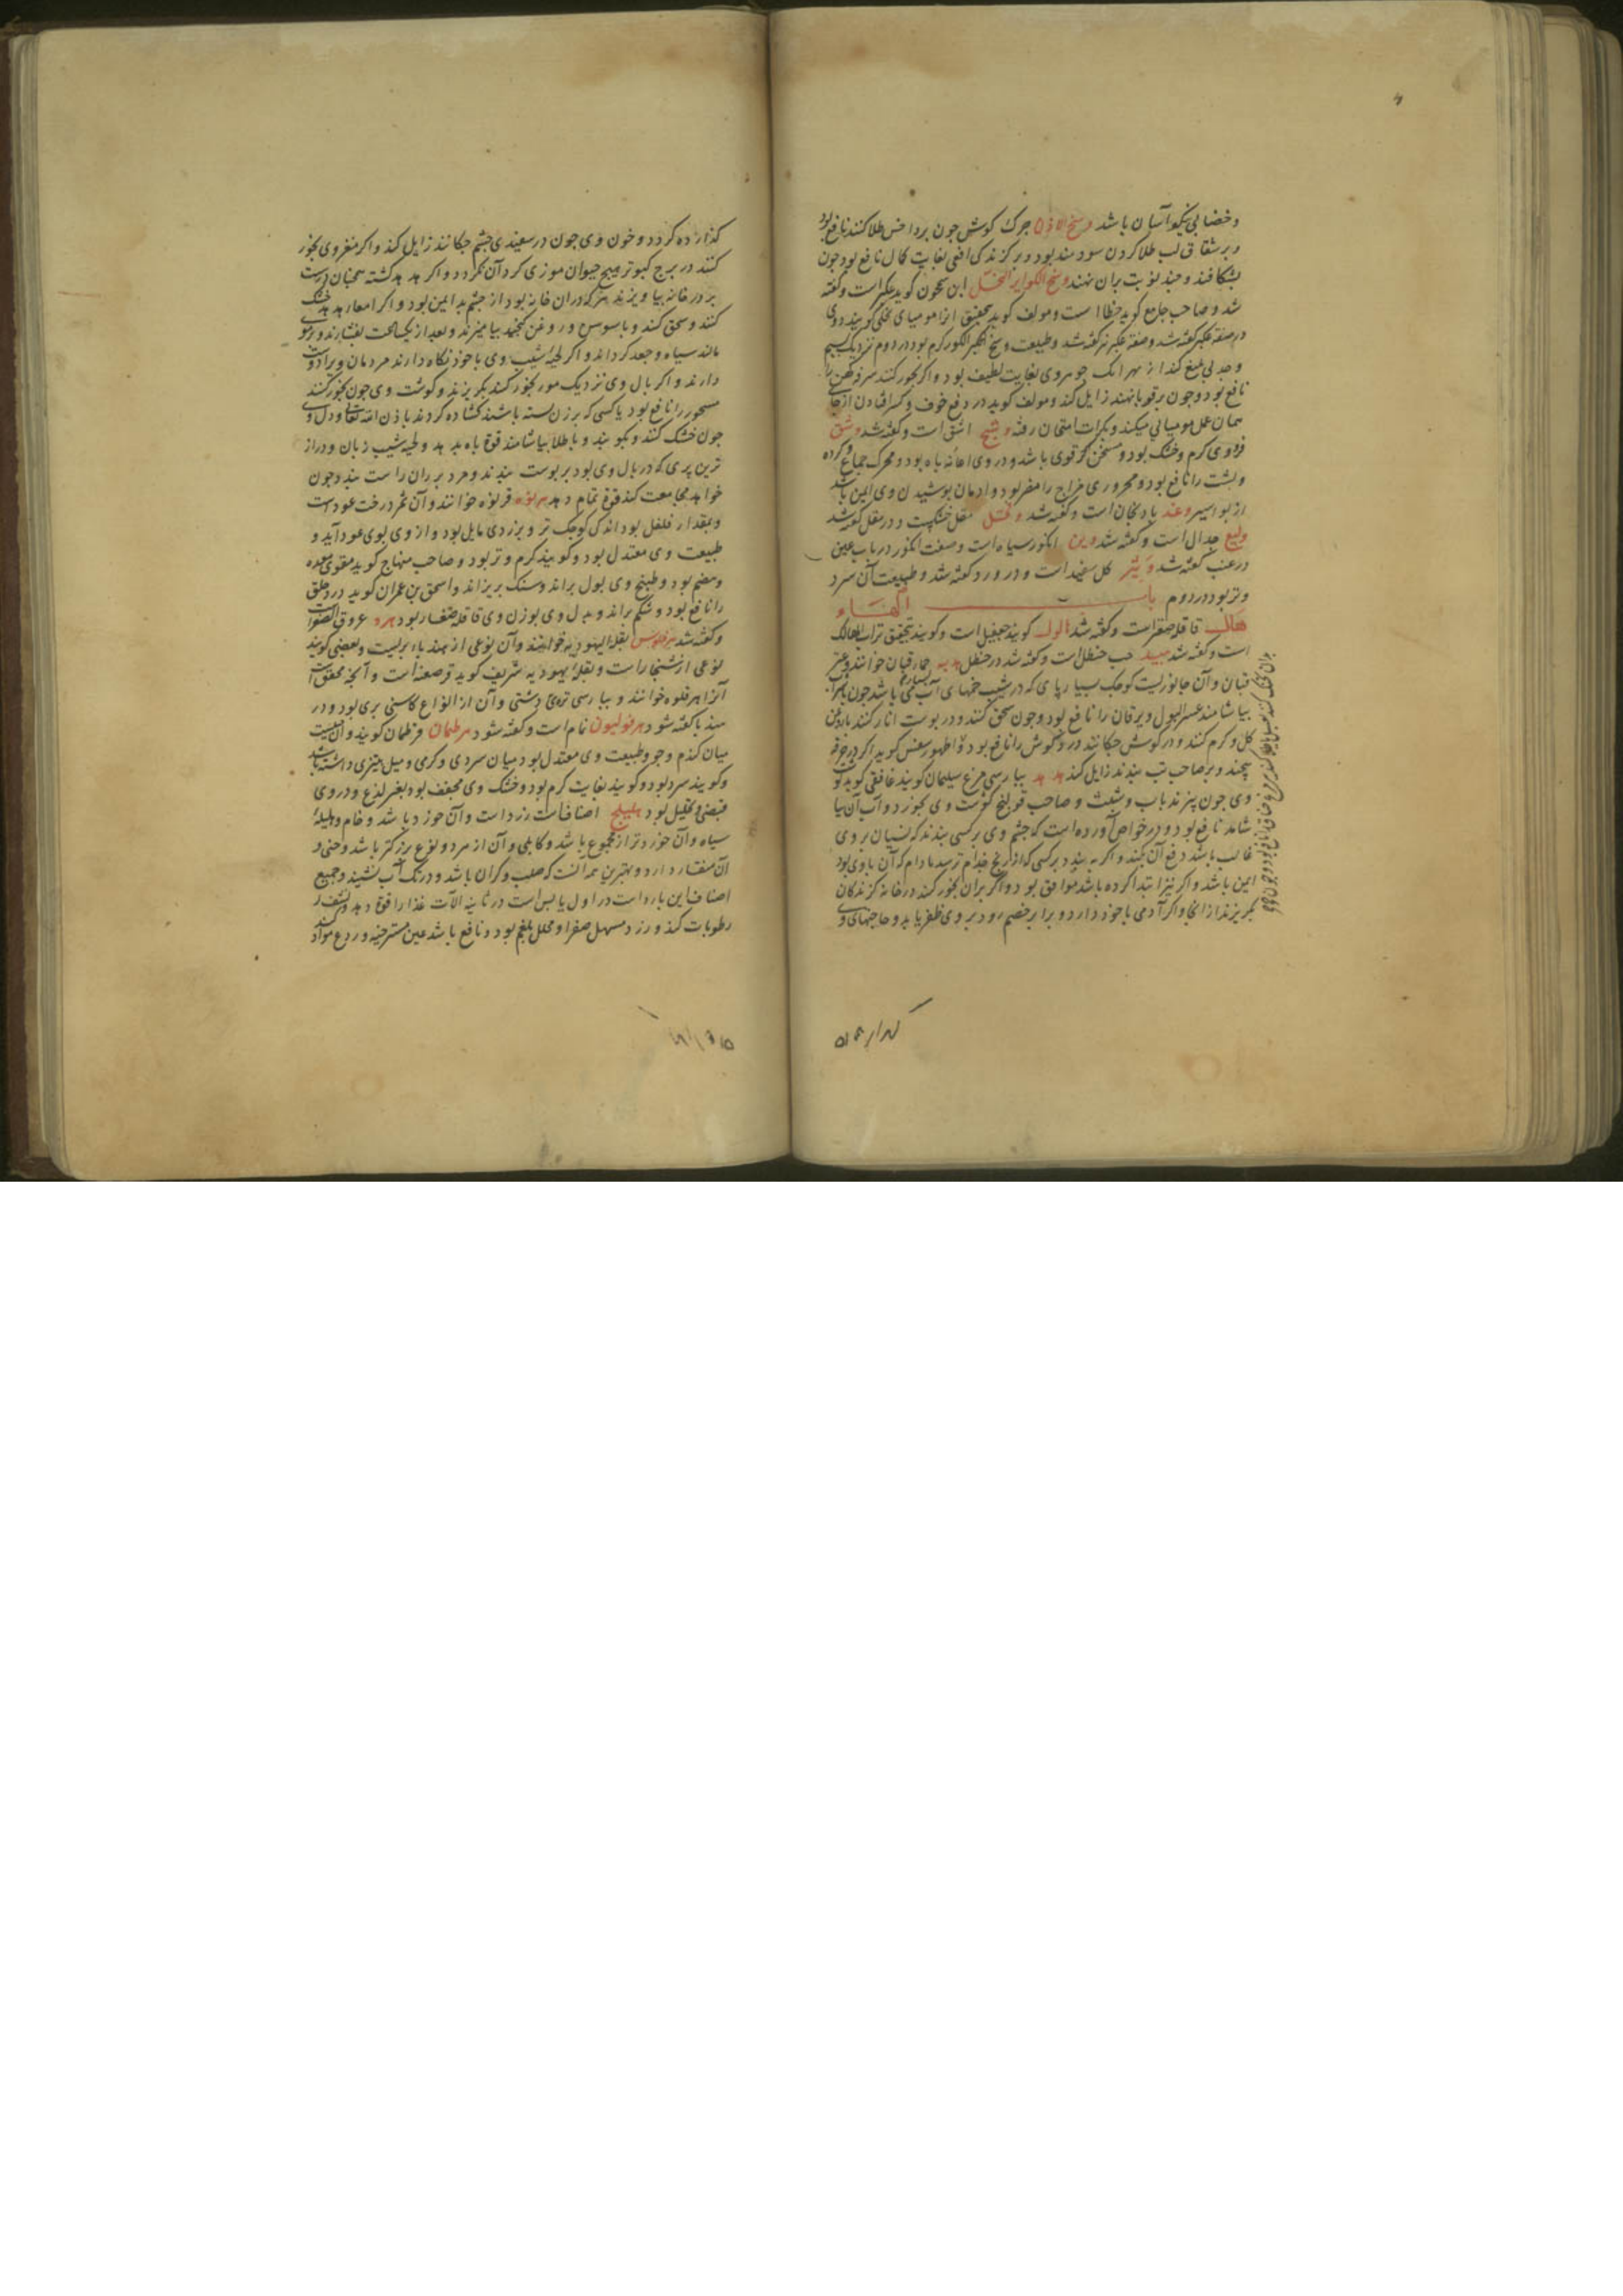 و خضابی نیکو آسان باشد وسخ الاذن جرک کوش جون بر داخس طلا کنند نافع بود
و بر شقاق لب طلا کردن سودمند بود و بر کزندکی افعی بغایت کمال نافع بود جون
بشکافند و جند نوبت بران نهند وسخ الکوایر النحل ابن سمحون کوید عکبر است و کفته
شد و صاحب جامع کوید خطا است و مولف کوید بتحقیق از مومیای نحلی کویند و وی
در صفة عکبر کفته شد و صفة عکبر نیز کفته شد و طبیعت وسخ الکور کرم بود در دوم نزدیک بسیم
و جذبی بلیغ کند از بهر انک جوهر وی بغایت لطیف بود و اکر بخور کنند سرفه کهن را
نافع بود و جون بر قوبا نهند زایل کند و مولف کوید در دفع خوف و کسر افتادن از جای
همان عمل مومیائی میکند و بکرات امتحان رفته وشج اشق است و کفته شد وشق
فرو وی کرم و خشک بود و مسخن کرده قوی باشد و در وی اعانه باه بود و محرک جماع
و پشت را نافع بود و محروری مزاج را مضر بود و ادمان پوشیدن وی ایمن باشد
از بواسیر وغد بادنجان است و کفته شد وقل مقل خشکست و در مقل کفته شد
ولیع جدال است و کفته شد وین انکور سیاه است و صفت انکور در باب عین
در عنب کفته شد وتیر کل سفید است و در ورد کفته شد و طبیعت آن سرد
و تر بود در دوم باب الهاء
هال قاقله صغار است و کفته شد هالوک کویند جعفیل است و کویند بتحقیق تراب الهالک
است و کفته شد هبید حب حنظل است و کفته شد در حنظل هدبه حمار قبان خوانند و عیر
قبان و آن جانوریست کوجک بسیار پای که در شیب خمهای آب می باشد جون با شراب
بیاشامند عسر البول و یرقان را نافع بود و جون سحق کنند و در پوست انار کنند با روغن
کل و کرم کنند و در کوش جکانند درد کوش را نافع بود و اطهورسفس کوید اکر در خرقه
پیچند و بر صاحب تب بندند زایل کند هدهد بپارسی مرغ سلیمان کویند غافقی کوید کوشت
وی جون پزند باب و شبت و صاحب قولنج کوشت وی بخورد و آب آن بیا
شامد نافع بود و در خواص آورده است که جشم وی بر کسی بندند که نسیان بر وی
غالب باشد دفع آن بکند و اکر بر بندند بر کسی که از رنج جذام ترسد مادام که آن با وی بود
ایمن باشد و اکر نیز ابتدا کرده باشد موافق بود و اکر بران بخور کنند در خانه کزندکان
بکریزند از انجا و اکر آدمی با خود دارد و برابر خصم رود بر وی ظفر یابد و حاجتهای وی
کذارده کردد و خون وی جون در سفیدی جشم جکانند زایل کند و اکر مغز وی بخور
کنند در برج کبوتر هیج حیوان موذی کرد آن نکردد و اکر هدهد کشته همچنان درست
بر در خانه بیاویزند هر که دران خانه بود از جشم بد ایمن بود و اکر امعا هدهد خشک
کنند و سحق کنند و با سوسن و روغن کنجد بیامیزند و بعد از یکساعت بفشارند و بر موی
مالند سیاه و جعد کرداند و اکر لحیه شیب وی با خود نکاه دارند مردمان ویرا دوست
دارند و اکر بال وی نزدیک مور بخور کنند بکریزند و کوشت وی جون بخور کنند
مسحور را نافع بود یا کسی که بر زن بسته باشند کشاده کردد باذن الله تعالی و دل وی
جون خشک کنند و بکوبند و با طلا بیاشامند قوة باه بدهد و لحیه شیب زبان و دراز
ترین پری که در بال وی بود بر پوست بندند و مرد بر ران راست بندد جون
خواهد مجامعت کند قوة تمام دهد هرنوه قرنوه خوانند و آن ثمر درخت عود است
و بمقدار فلفل بود اندکی کوجک تر و بزردی مایل بود و از وی بوی عود آید و
طبیعت وی معتدل بود و کویند کرم و تر بود و صاحب منهاج کوید مقوی معده
و هضم بود و طبیخ وی بول براند و سنک بریزاند و اسحق بن عمران کوید درد حلق
را نافع بود و شکم براند و بدل وی بوزن وی قاقله صغار بود هرد عروق الصفر است
و کفته شد هرقلوس بقلة الیهودیه خوانند و آن نوعی از هندباء بریست و بعضی کویند
نوعی از شنجار است و بقلة یهودیه شریف کوید قرصعنه است و آنچه محقق است
آنرا هرقلوه خوانند و بپارسی تره دشتی و آن از انواع کاسنی بری بود و در
هندبا کفته شود هرفولیون نمام است و کفته شود هرطمان قرطمان کویند و آن حبیست
میان کندم و جو و طبیعت وی معتدل بود میان سردی و کرمی و میل بتری داشته باشد
و کویند سرد بود و کویند بغایت کرم بود و خشک وی مجفف بود بغیر لذع و در وی
قبضی و تحلیل بود هلیلج اصنافست زرد است و آن خوزد باشد و خام و هلیلۀ
سیاه و آن خوردتر از مجموع باشد و کابلی و آن از هر دو نوع بزرکتر باشد و جنی و
آن منقار دارد و بهترین همه آنست که صلب و کران باشد و در تک آب نشیند و جمیع
اصناف این بارد است در اول یابس است در ثانیه الات غذا را قوة دهد و نشف
رطوبات کند و زرد مسهل صفرا و محلل بلغم بود و نافع باشد عین مسترخیه و ردع مواد کند